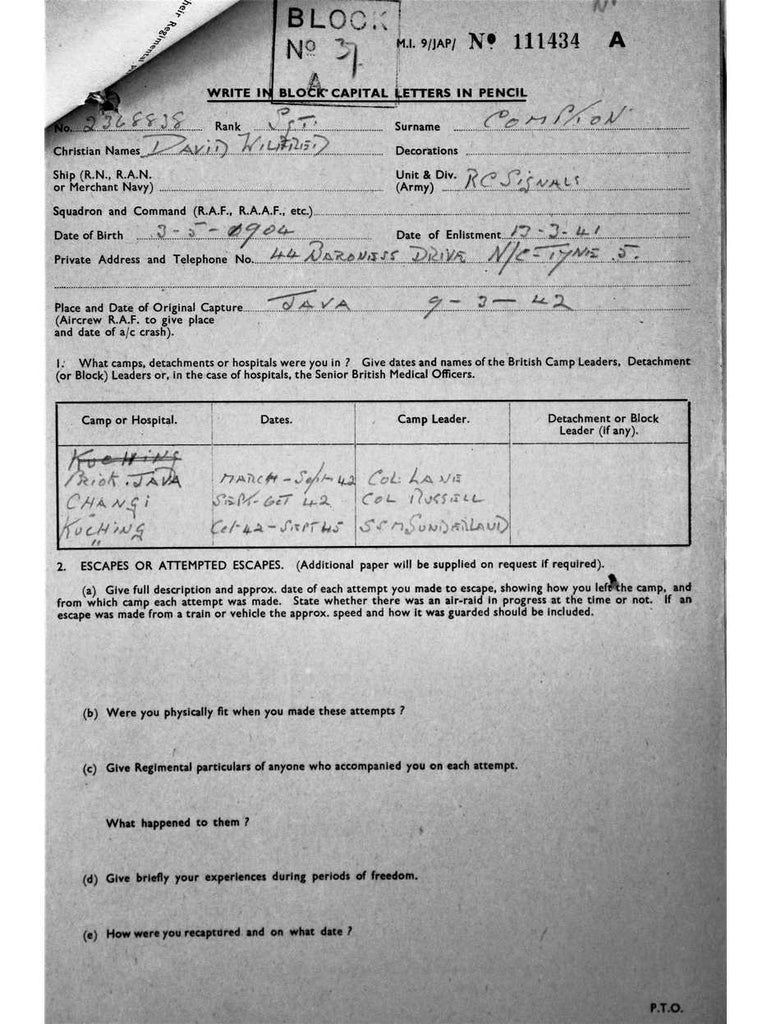 heir Regimental
BLOCK
No 37
A
M.I. 9/JAP/ No 111434 A
WRITE IN BLOCK CAPITAL LETTERS IN PENCIL
No. 2368838 Rank Sgt. Surname COMPTON
Christian Names DAVID WILFRED Decorations
Ship (R.N., R.A.N. or Merchant Navy) Unit & Div. (Army) RC SIGNALS
Squadron and Command (R.A.F., R.A.A.F., etc.)
Date of Birth 3-5-1904 Date of Enlistment 13-3-41
Private Address and Telephone No. 44 BARONESS DRIVE N/C-TYNE 5.
Place and Date of Original Capture JAVA 9-3-42
(Aircrew R.A.F. to give place
and date of a/c crash).
1. What camps, detachments or hospitals were you in ? Give dates and names of the British Camp Leaders, Detachment
(or Block) Leaders or, in the case of hospitals, the Senior British Medical Officers.
Camp or Hospital. Dates. Camp Leader. Detachment or Block Leader (if any).
KUCHING
PRIOK. JAVA MARCH-Sept 42 COL. LANE
CHANGI SEPT-OCT 42 COL RUSSELL
KUCHING Oct 42-SEPT 45 SSM SUNDERLAND
2. ESCAPES OR ATTEMPTED ESCAPES. (Additional paper will be supplied on request if required).
(a) Give full description and approx. date of each attempt you made to escape, showing how you left the camp, and
from which camp each attempt was made. State whether there was an air-raid in progress at the time or not. If an
escape was made from a train or vehicle the approx. speed and how it was guarded should be included.
(b) Were you physically fit when you made these attempts ?
(c) Give Regimental particulars of anyone who accompanied you on each attempt.
What happened to them ?
(d) Give briefly your experiences during periods of freedom.
(e) How were you recaptured and on what date ?
P.T.O.